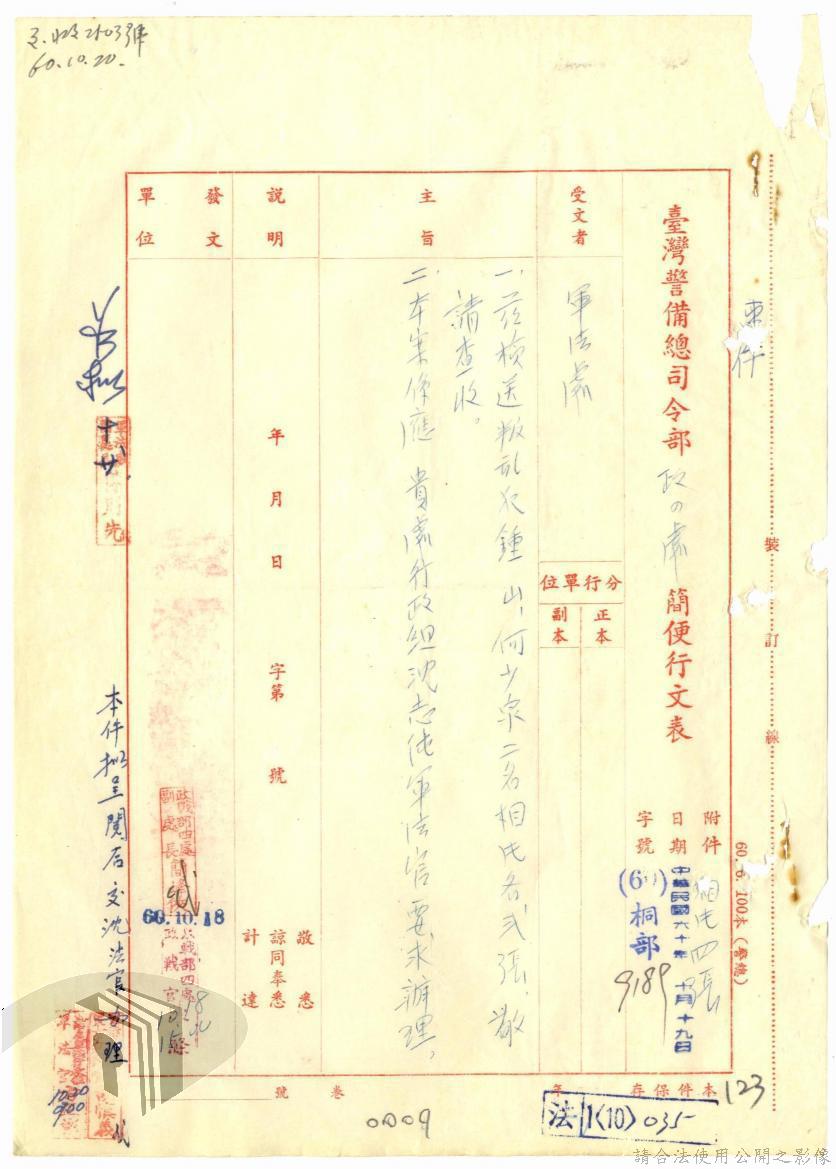 60.10.20.
速件
臺灣警備總司令部 政四處 簡便行文表
附件 相片四張
日期 中華民國六十年十月十九日
字號 (60)桐部 9189
受文者 軍法處
分行單位
正本
副本
主旨
一、茲檢送叛亂犯鍾山、何少泉二名相片各弍張,敬
請查收。
二、本案係應 貴處行政組沈志純軍法官要求辦理,
說明
年 月 日 字第 號
計達
諒同奉悉
敬悉
發文
單位
60.10.18
本件擬呈閱后交沈法官辦理
10.20
0900
裝訂線
60.6.100本(警總)
本件保存 年 號 卷
123
法1(10)035
0009
請合法使用公開之影像